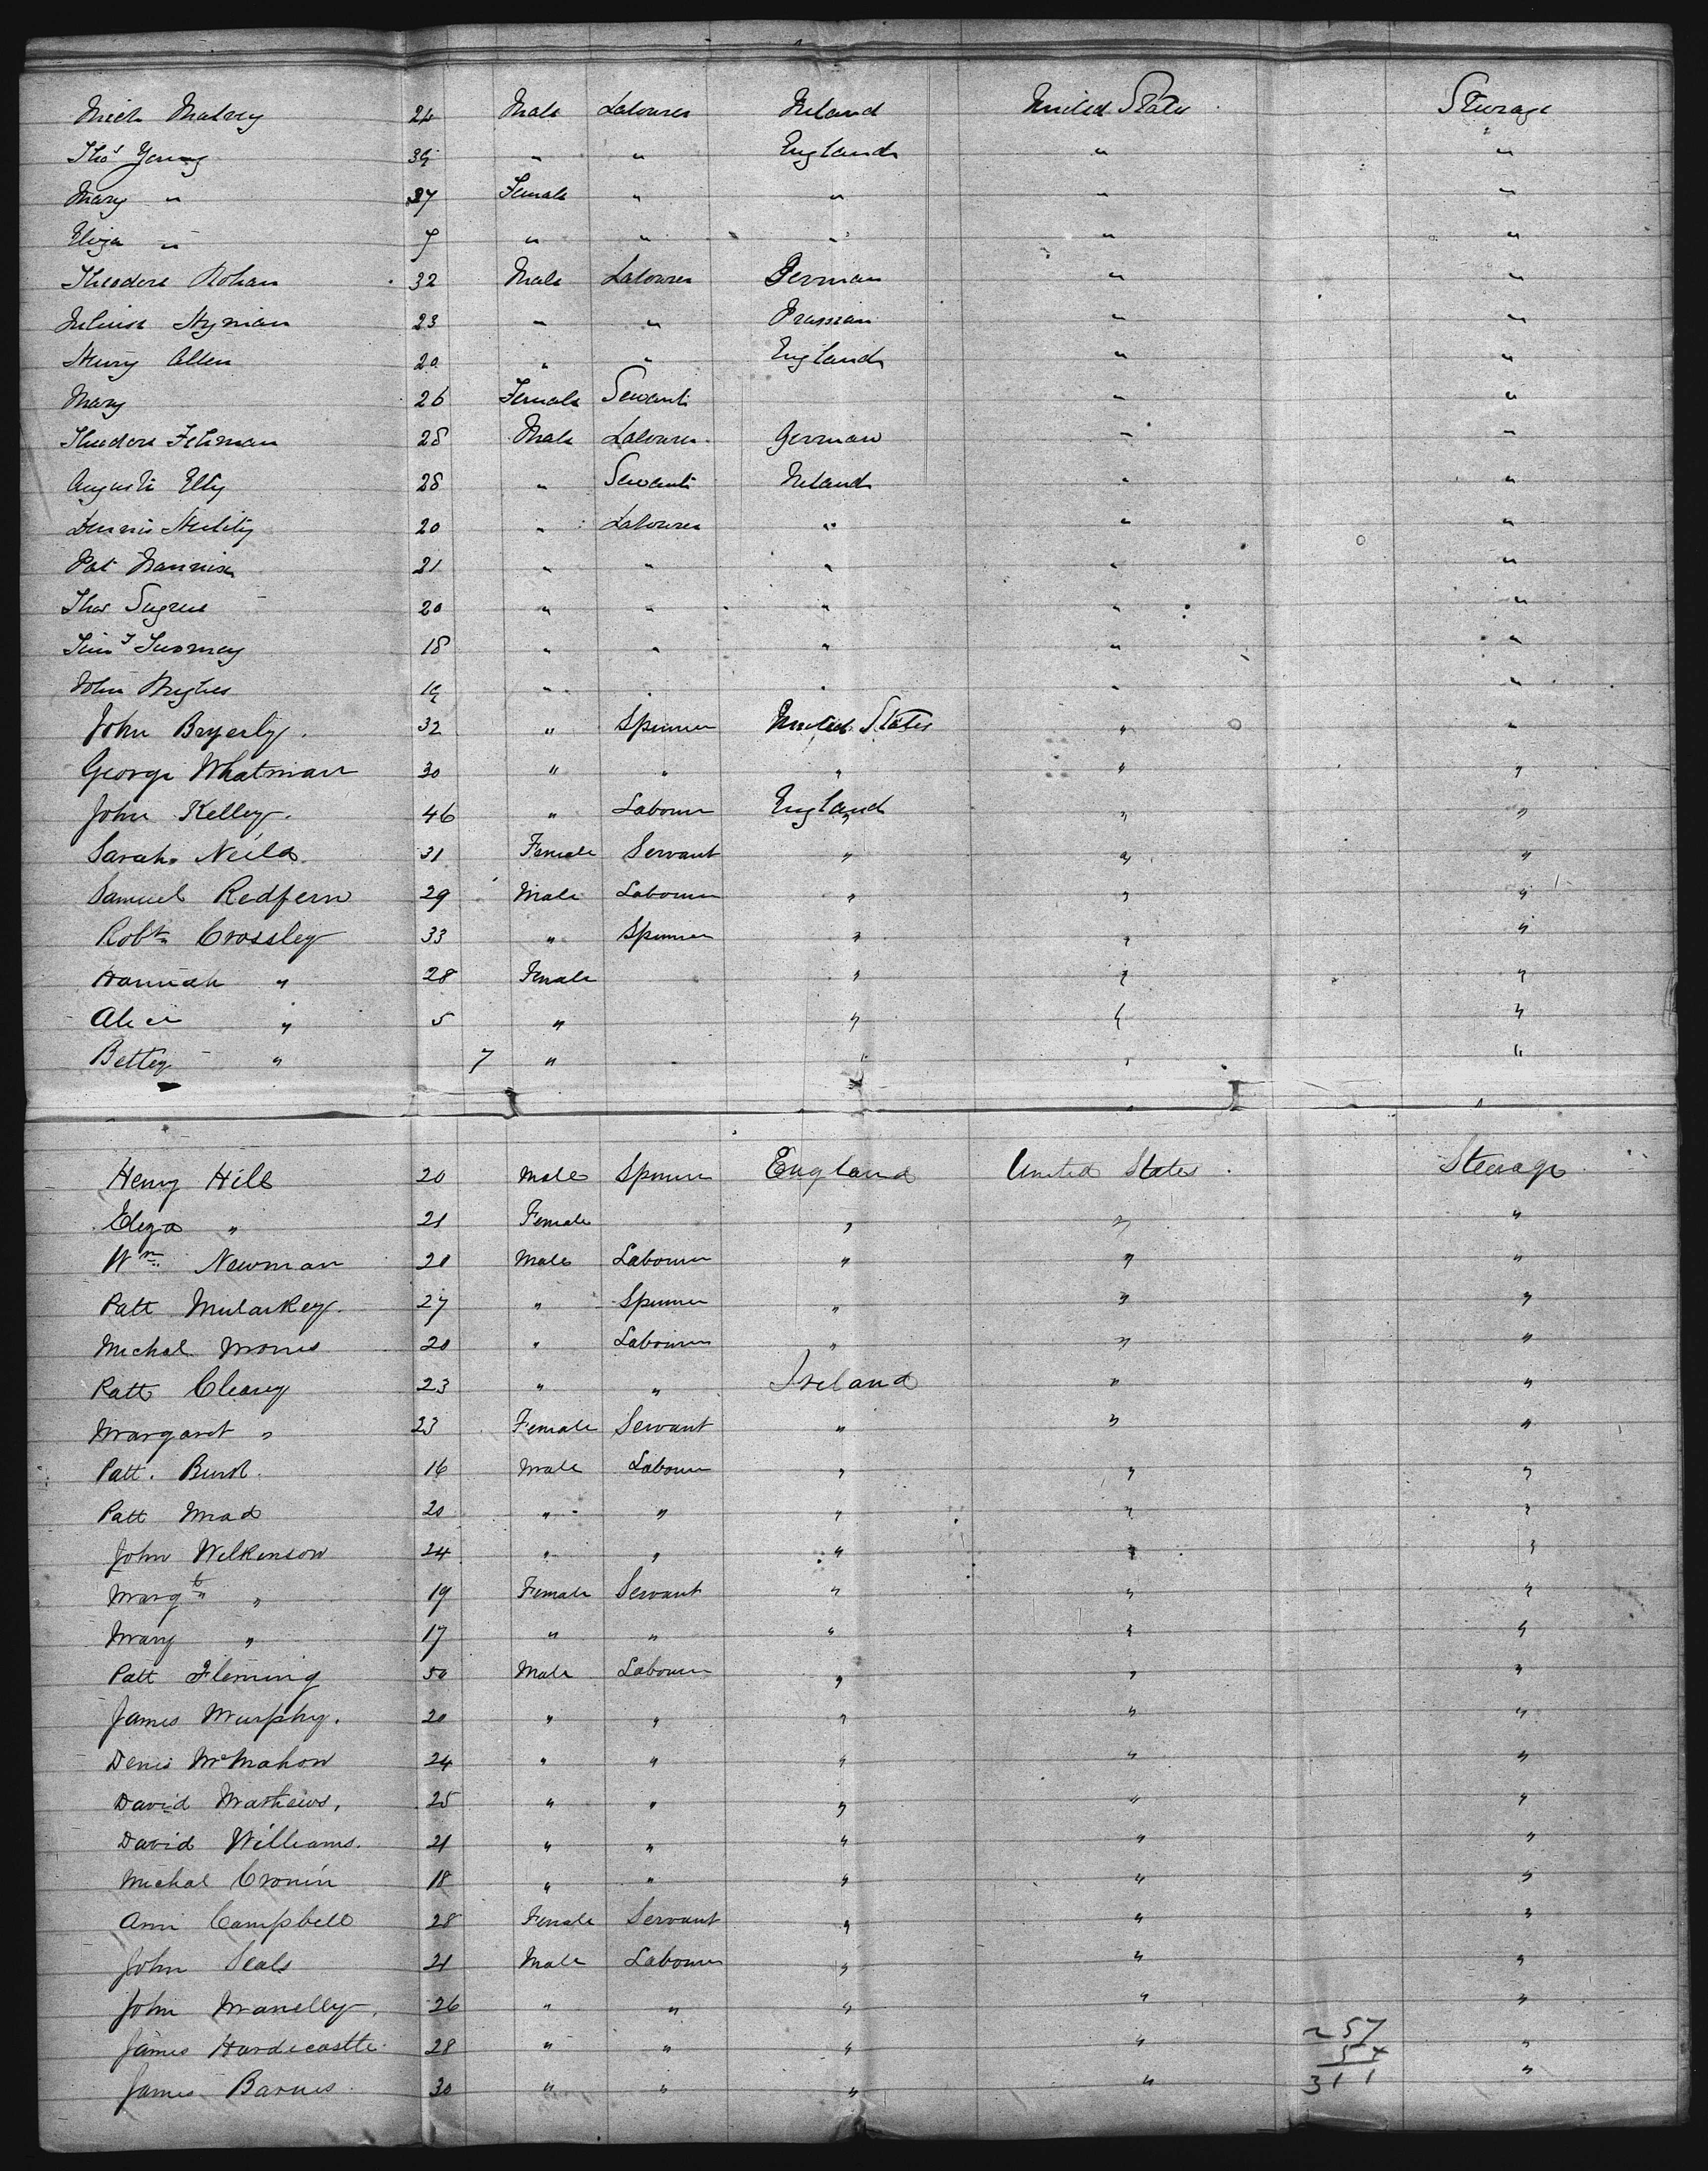 Mich Mulvey 24 Male Labourer Ireland United States Steerage
Thos Young 34 " " England " "
Mary " 37 Female " " " "
Eliza " 7 " " " " "
Theodore Rohan 32 Male Labourer German " "
Hyman 23 " " Prussian " "
Henry Allen 20 " " England " "
Mary 26 Female Servant " "
Theodore Fehman 28 Male Labourer German " "
Elty 28 " Servant Ireland " "
Dennis 20 " Labourer " " "
Pat Mannion 21 " " " " "
Thos Sugrue 20 " " " " "
Timy Twomey 18 " " " " "
John Hughes 19 " " " " "
John Bryerly. 32 " Spinner United States " "
George Whatman 30 " " " " "
John Kelley. 46 " Labourer England " "
Sarah Neild. 31 Female Servant " " "
Samuel Redfern 29 Male Labourer " " "
Robt Crossley 33 " Spinner " " "
Hannah " 28 Female " " "
Alice " 5 " " " "
Bettey " 7 " " " "
Henry Hill 20 Male Spinner England United States Steerage
Eliza " 21 Female " " "
Wm Newman 21 Male Labourer " " "
Patt Mularkey. 27 " Spinner " " "
Michal Morris 20 " Labourer " " "
Patt Cleary 23 " " Ireland " "
Margaret " 23 Female Servant " " "
Patt. Burk. 16 Male Labourer " " "
Patt Mad 20 " " " " "
John Wilkinson 24 " " " " "
Margt " 19 Female Servant " " "
Mary " 17 " " " " "
Patt Fleming 50 Male Labourer " " "
James Murphy. 20 " " " " "
Denis McMahon 24 " " " " "
David Mathews, 25 " " " " "
David Williams. 21 " " " " "
Michal Cronin 18 " " " " "
Ann Campbell 28 Female Servant " " "
John Seals 21 Male Labourer " " "
John Manelly. 26 " " " " "
James Hardecastle. 28 " " " " "
257
54
311
James Barnes. 30 " " " " "